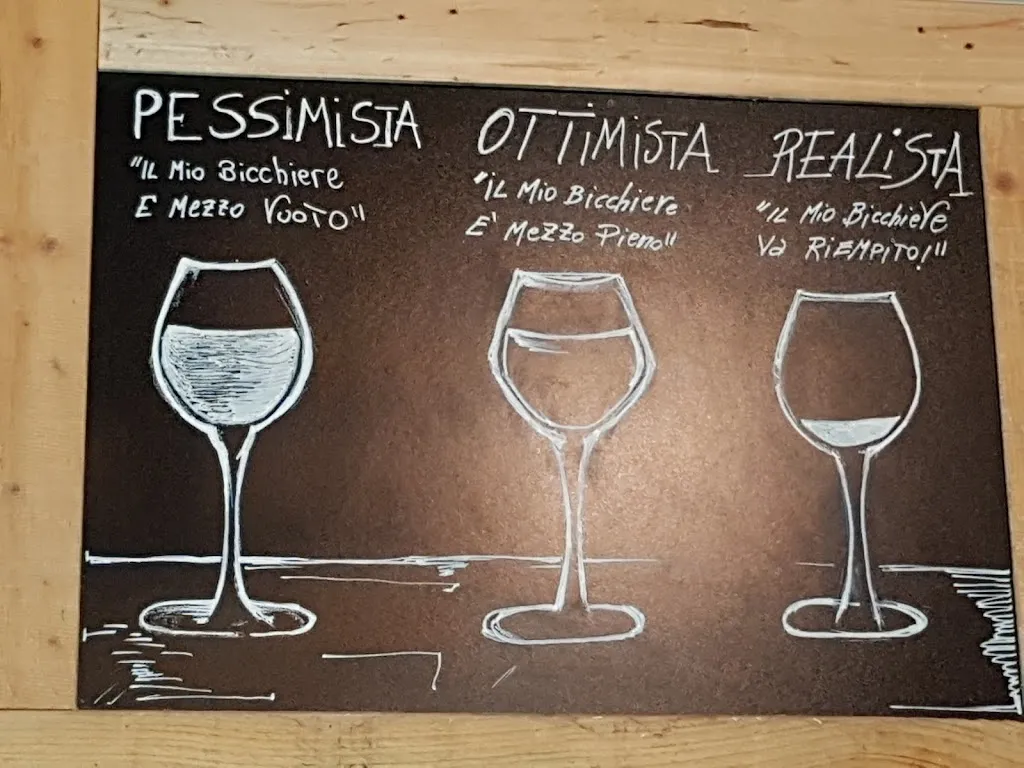 PESSIMISTA
"IL Mio Bicchiere
E Mezzo VUOTO"
OTTIMISTA
"IL Mio Bicchiere
E' Mezzo Pieno"
REALISTA
"IL Mio Bicchiere
Va RIEMPITO!"